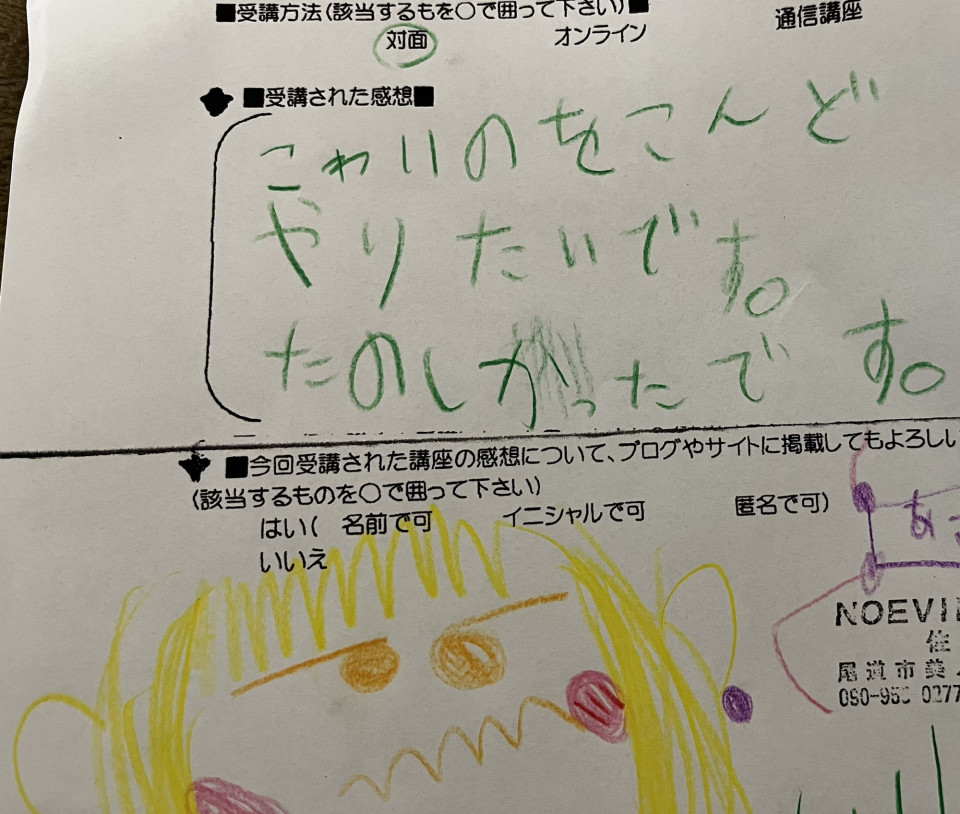 ■受講方法(該当するもを○で囲って下さい)■
対面 オンライン 通信講座
■受講された感想■
こわいのをこんど
やりたいです。
たのしかったです。
■今回受講された講座の感想について、ブログやサイトに掲載してもよろしい
(該当するものを○で囲って下さい)
はい( 名前で可 イニシャルで可 匿名で可)
いいえ
NOEVI
尾道市美